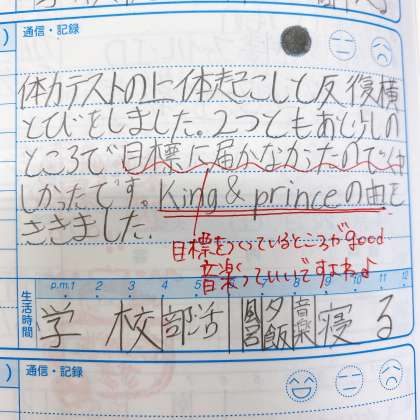 通信・記録
体力テストの上体起こしと反復横
とびをしました。2つともあと少しの
ところで目標に届かなかったのでくや
しかったです。King & princeの曲を
ききました。
目標をつくっているところがgood
音楽っていいですよね♪
生活時間
p.m.1 2 3 4 5 6 7 8 9 10 11 12
学校 部活 風呂 夕飯 音楽 寝る
通信・記録